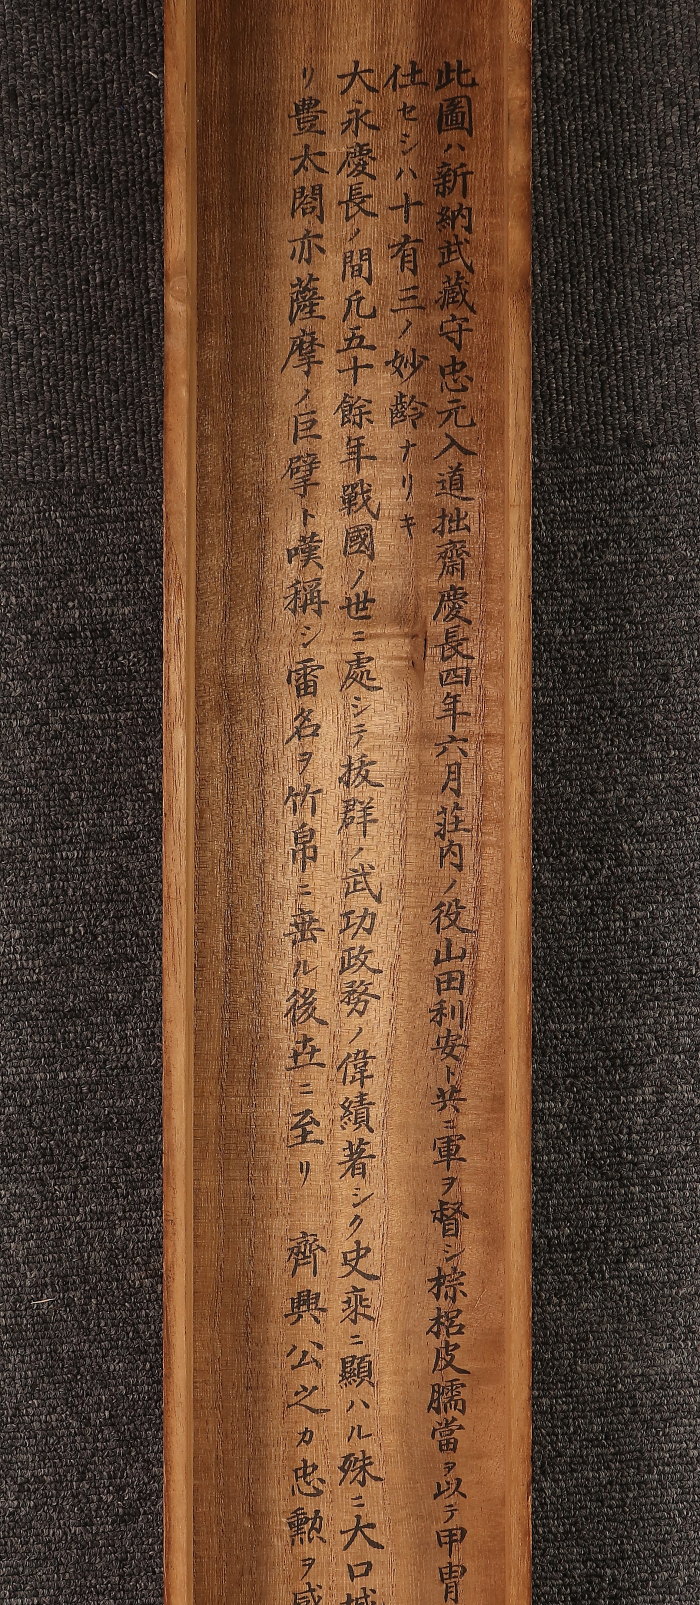 此圖ハ新納武藏守忠元入道拙齋慶長四年六月莊内ノ役山田利安ト共ニ軍ヲ督シ棕梠皮臑當ヲ以テ甲冑
仕セシハ十有三ノ妙齡ナリキ
大永慶長ノ間凢五十餘年戰國ノ世ニ處シテ拔群ノ武功政務ノ偉績著シク史乘ニ顯ハル殊ニ大口城
リ豊太閤亦薩摩ノ巨擘ト嘆稱シ雷名ヲ竹帛ニ垂ル後世ニ至リ 齊興公之カ忠勲ヲ感